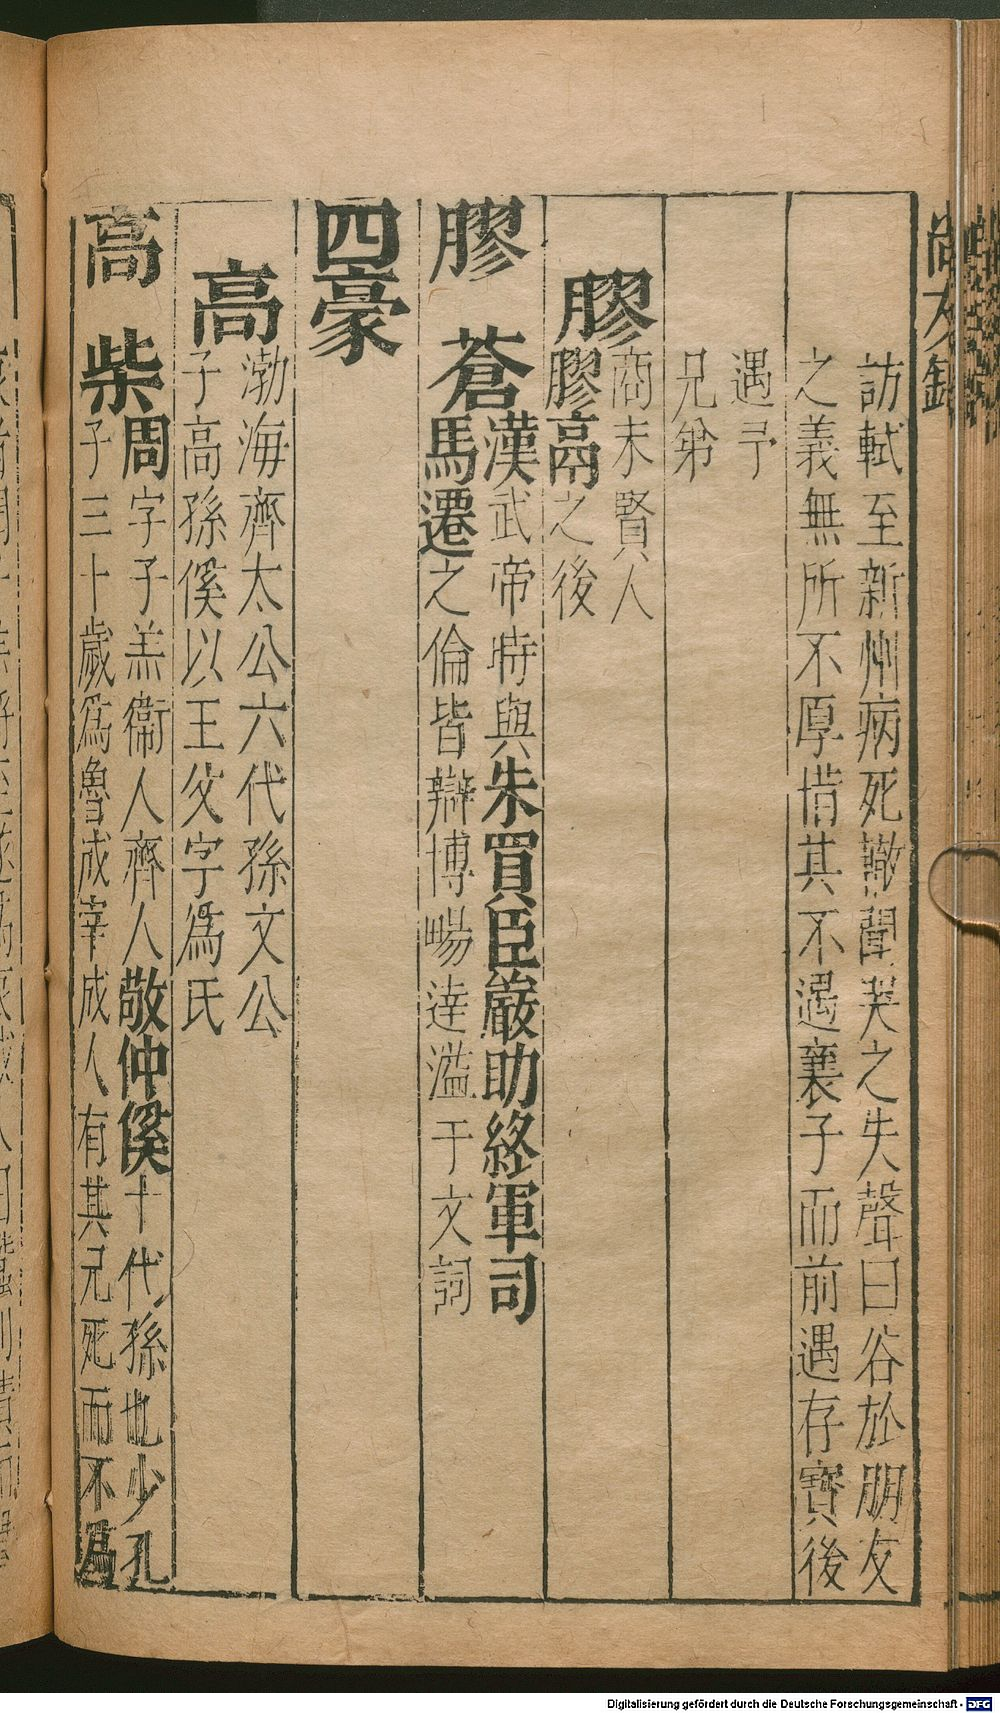 尚友錄
訪軾至新州病死轍聞哭之失聲曰谷於朋友
之義無所不厚惜其不遇襄子而前遇存寶後
遇予
兄弟
膠
商末賢人
膠鬲之後
膠蒼漢武帝時與朱買臣嚴助終軍司
馬遷之倫皆辯博暢達溢于文詞
四豪
高
渤海齊太公六代孫文公
子高孫傒以王父字爲氏
高柴周字子羔衞人齊人敬仲傒十代孫也少孔
子三十歲爲魯成宰成人有其兄死而不爲
Digitalisierung gefördert durch die Deutsche Forschungsgemeinschaft - DFG